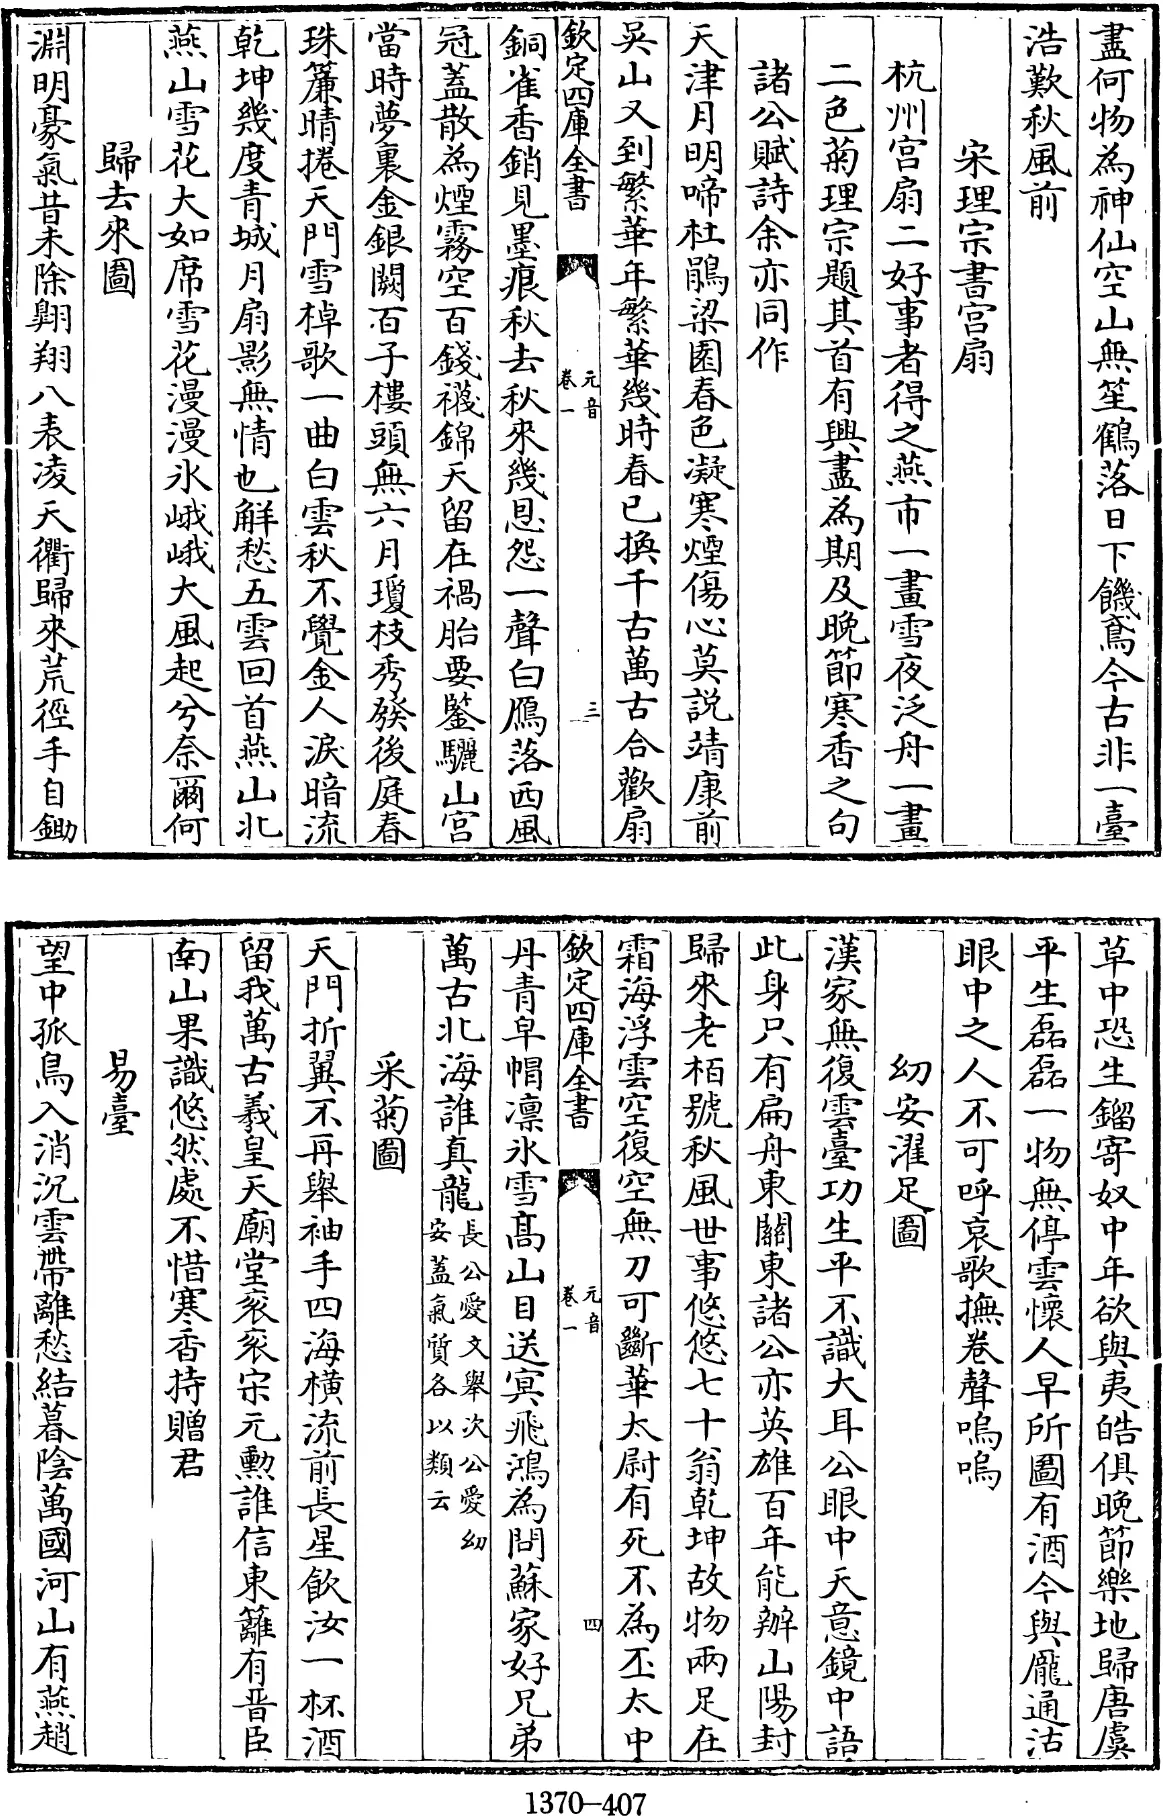 盡何物為神仙空山無笙鶴落日下饑鳶今古非一臺
浩歎秋風前
宋理宗書宫扇
杭州宫扇二好事者得之燕市一畫雪夜泛舟一畫
二色菊理宗題其首有興盡為期及晚節寒香之句
諸公賦詩余亦同作
天津月明啼杜鵑梁園春色凝寒煙傷心莫説靖康前
吳山又到繁華年繁華幾時春已換千古萬古合歡扇
欽定四庫全書
元音
卷一
三
銅雀香銷見墨痕秋去秋來幾恩怨一聲白鴈落西風
冠蓋散為煙霧空百錢襪錦天留在禍胎要鑒驪山宮
當時夢裏金銀闕百子樓頭無六月瓊枝秀發後庭春
珠簾晴捲天門雪棹歌一曲白雲秋不覺金人淚暗流
乾坤幾度青城月扇影無情也解愁五雲回首燕山北
燕山雪花大如席雪花漫漫氷峨峨大風起兮奈爾何
歸去來圖
淵明豪氣昔未除翺翔八表凌天衢歸來荒徑手自鋤
草中恐生鎦寄奴中年欲與夷皓俱晚節樂地歸唐虞
平生磊磊一物無停雲懷人早所圖有酒今與龎通沽
眼中之人不可呼哀歌撫卷聲嗚嗚
幼安濯足圖
漢家無復雲臺功生平不識大耳公眼中天意鏡中語
此身只有扁舟東關東諸公亦英雄百年能辦山陽封
歸來老栢號秋風世事悠悠七十翁乾坤故物兩足在
霜海浮雲空復空無刀可斷華太尉有死不為丕太中
欽定四庫全書
元音
卷一
四
丹青皁帽凛氷雪髙山目送冥飛鴻為問蘇家好兄弟
萬古北海誰真龍長公愛文舉次公愛幼
安蓋氣質各以類云
采菊圖
天門折翼不再舉袖手四海橫流前長星飲汝一杯酒
留我萬古羲皇天廟堂衮衮宋元勲誰信東籬有晋臣
南山果識悠然處不惜寒香持贈君
易臺
望中孤鳥入消沉雲帶離愁結暮陰萬國河山有燕趙
1370—407